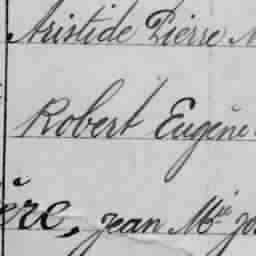 Aristide Pierre
Robert Eugène
ère, Jean Mie